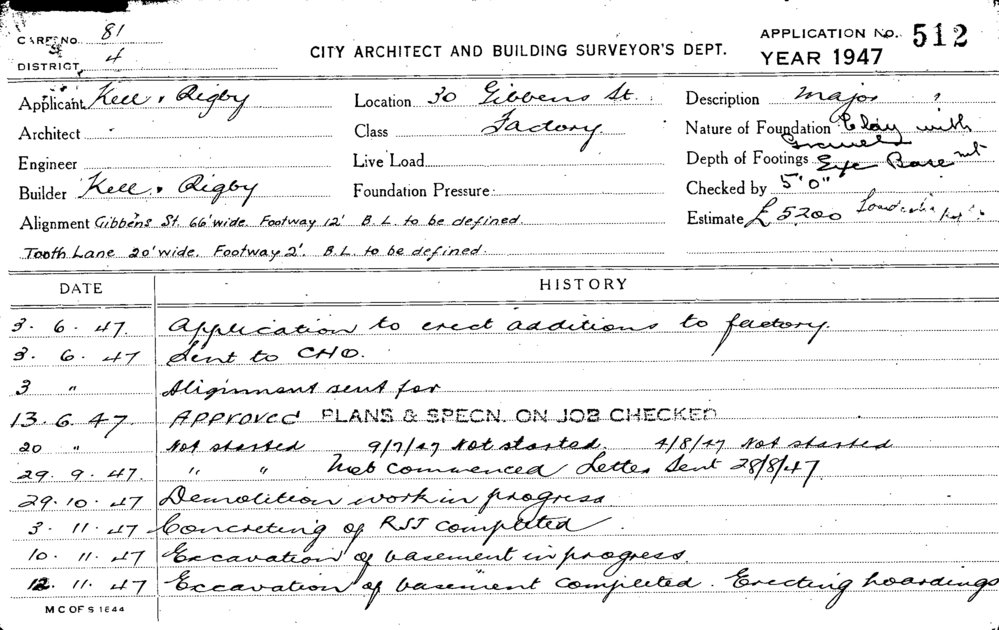 CARD NO. 81
APPLICATION NO. 512
DISTRICT 4
CITY ARCHITECT AND BUILDING SURVEYOR'S DEPT.
YEAR 1947
Applicant Kell & Rigby
Location 30 Gibbens St.
Description Major
Architect
Class Factory
Nature of Foundation Clay with
Gravel
Engineer
Live Load
Depth of Footings Exc Basemt
Builder Kell & Rigby
Foundation Pressure
Checked by 5'0"
Alignment Gibbens St. 66' wide. Footway 12' B.L. to be defined.
Estimate £5200
Tooth Lane 20' wide. Footway 2'. B.L. to be defined.
DATE HISTORY
3. 6. 47. Application to erect additions to factory.
3. 6. 47 Sent to CHO.
3 " Alignment sent for
13. 6. 47. APPROVED PLANS & SPECN. ON JOB CHECKED
20 " Not started 9/7/47 Not started. 4/8/47 Not started
29. 9. 47. " " Not commenced Letter Sent 28/8/47.
29. 10. 47 Demolition work in progress
3. 11. 47 Concreting of RSJ completed
10. 11. 47 Excavation of basement in progress
12. 11. 47 Excavation of basement completed. Erecting hoardings
M C OF S 1844